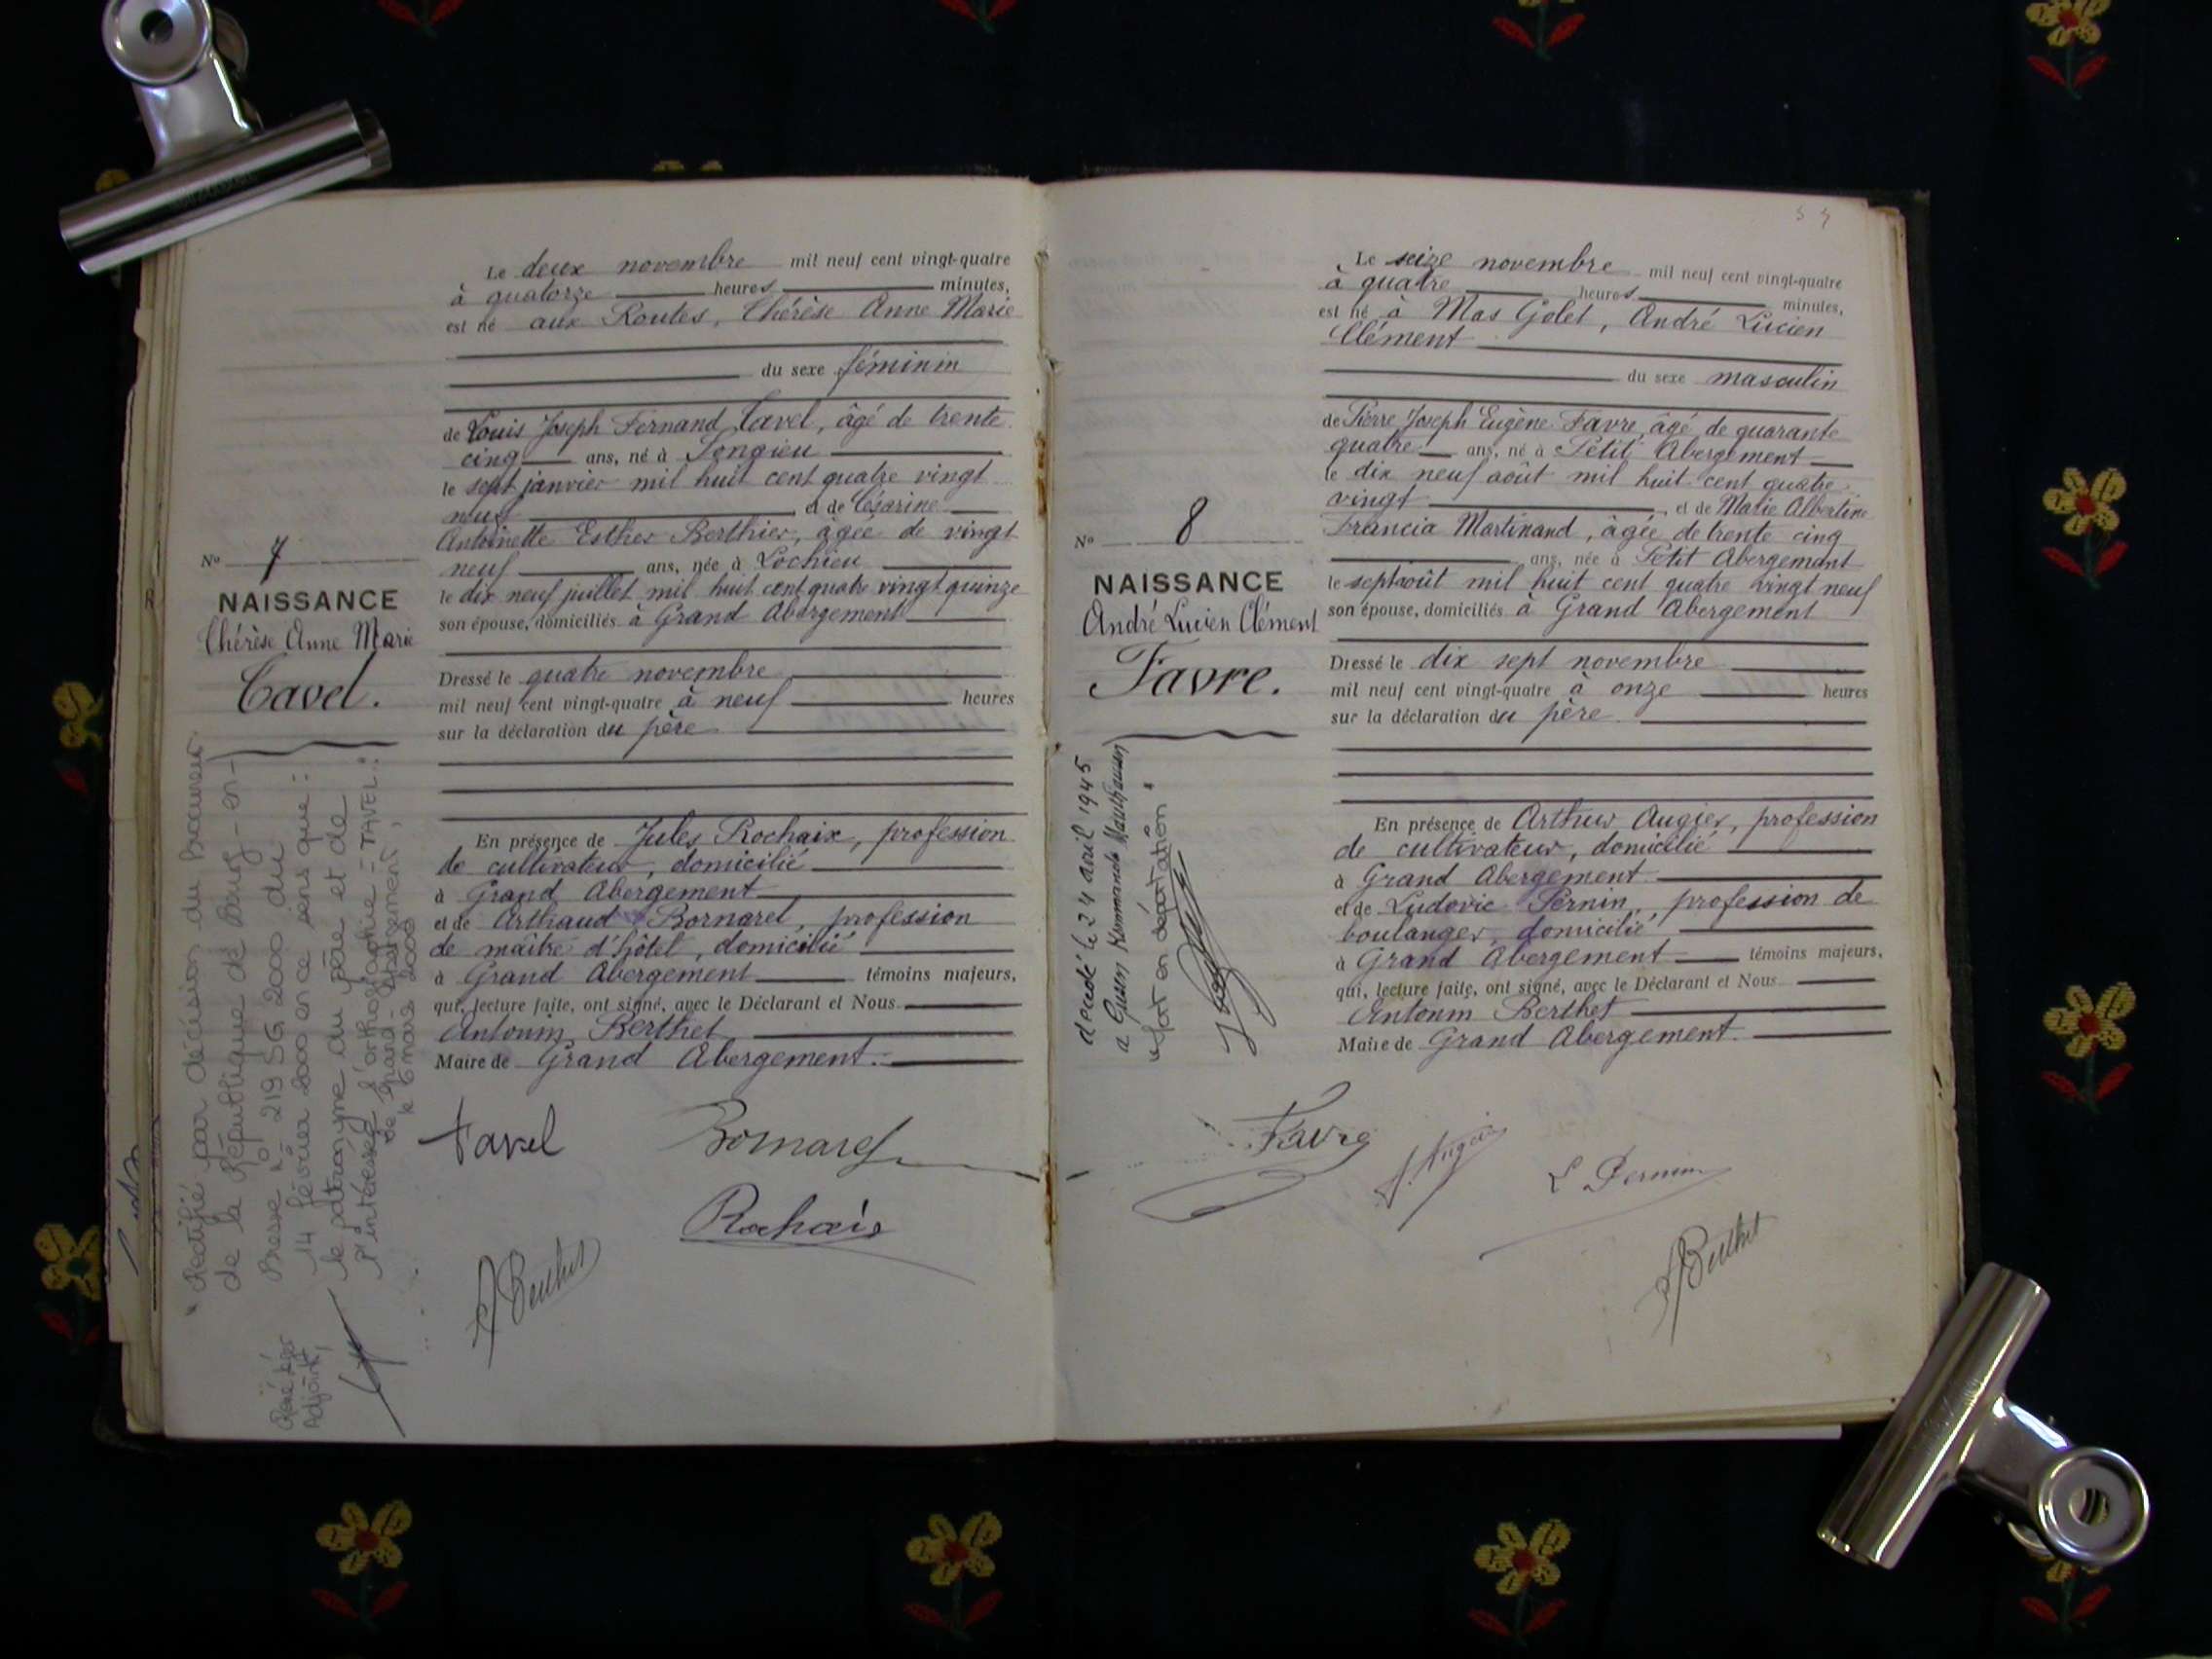 Le deux novembre mil neuf cent vingt-quatre
à quatorze heures minutes,
est né aux Routes, Thérèse Anne Marie
du sexe féminin
de Louis Joseph Fernand Tavel, âgé de trente
cinq ans, né à Songieu
le sept janvier mil huit cent quatre vingt
neuf et de Césarine
Antoinette Esther Berthier, âgée de vingt
neuf ans, née à Lochieu
le dix neuf juillet mil huit cent quatre vingt quinze
son épouse, domiciliés à Grand Abergement
Dressé le quatre novembre
mil neuf cent vingt-quatre à neuf heures
sur la déclaration du père
En présence de Jules Rochaix, profession
de cultivateur, domicilié
à Grand Abergement
et de Arthaud Bornarel, profession
de maître d'hôtel, domicilié
à Grand Abergement témoins majeurs,
qui, lecture faite, ont signé, avec le Déclarant et Nous
Antonin Berthet
Maire de Grand Abergement.
tavel Bornarel
Rochaix
A Berthet
No 7
NAISSANCE
Thérèse Anne Marie
Tavel.
"Rectifié par décision du Procureur
de la République de Bourg-en-
Bresse n° 219 SG 2000 du
14 février 2000 en ce sens que :
le patronyme du père et de
l'intéressée s'orthographie = TAVEL."
de Grand-Abergement,
le 6 mars 2000
Adjoint,
54
Le seize novembre mil neuf cent vingt-quatre
à quatre heures minutes,
est né à Mas Golet, André Lucien
Clément
du sexe masculin
de Pierre Joseph Eugène Favre, âgé de quarante
quatre ans, né à Petit Abergement
le dix neuf août mil huit cent quatre
vingt et de Marie Albertine
Francia Martinand, âgée de trente cinq
ans, née à Petit Abergement
le sept août mil huit cent quatre vingt neuf
son épouse, domiciliés à Grand Abergement
Dressé le dix sept novembre
mil neuf cent vingt-quatre à onze heures
sur la déclaration du père
En présence de Arthur Augier, profession
de cultivateur, domicilié
à Grand Abergement
et de Ludovic Pernin, profession de
boulanger, domicilié
à Grand Abergement témoins majeurs,
qui, lecture faite, ont signé, avec le Déclarant et Nous
Antonin Berthet
Maire de Grand Abergement.
Favre
A. Augier
L Pernin
A Berthet
No 8
NAISSANCE
André Lucien Clément
Favre.
décédé le 24 avril 1945
a Gusen Kommando Mauthausen
"Mort en déportation"